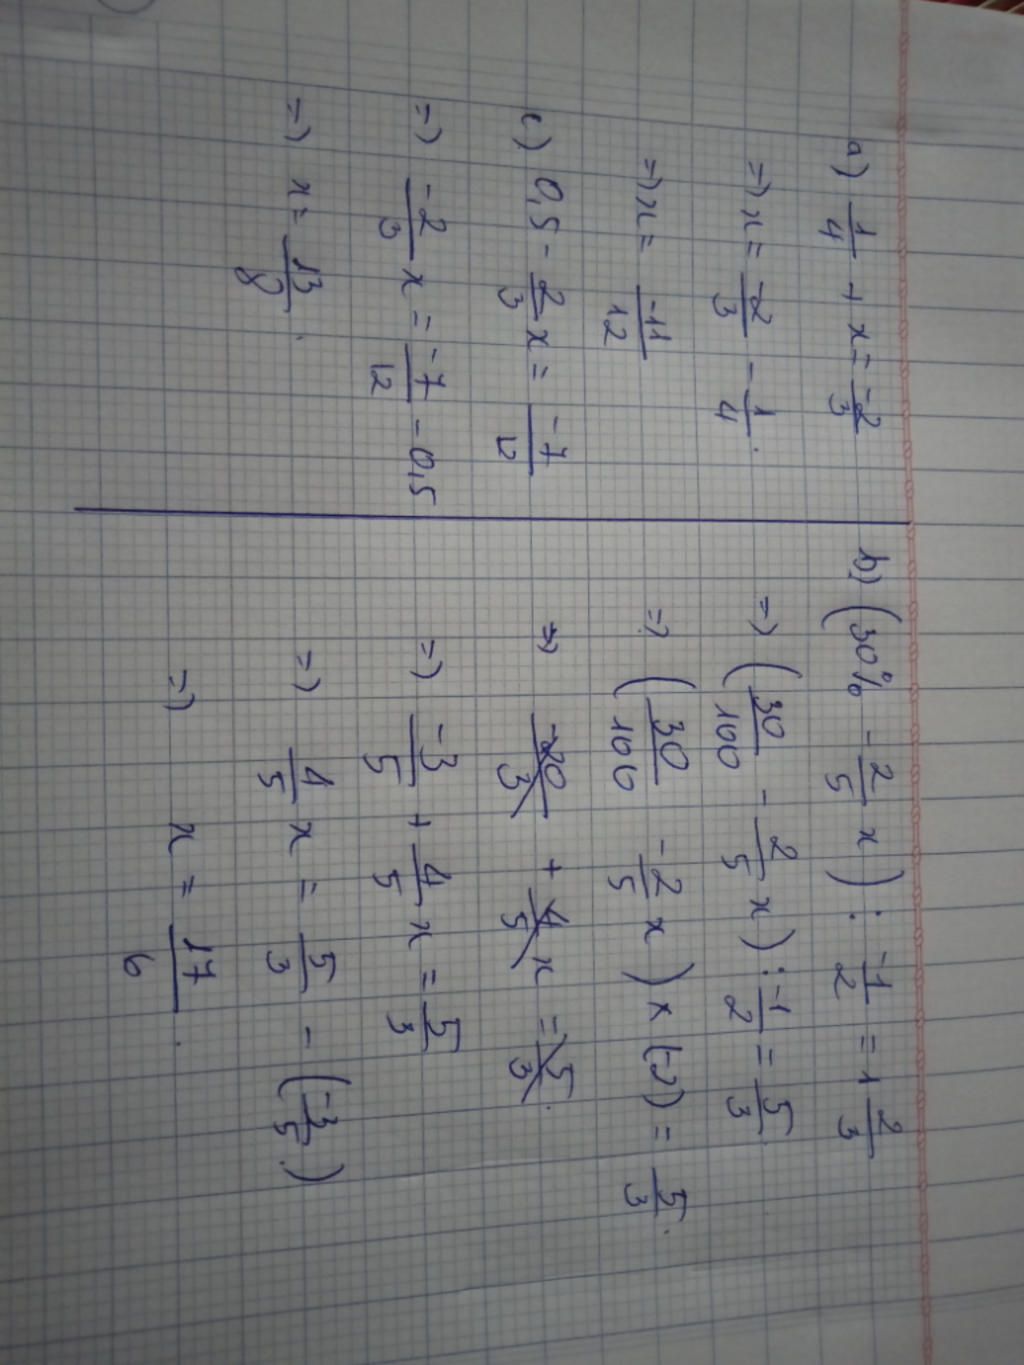 a) 1/4 + x = -2/3
=> x = -2/3 - 1/4.
=> x = -11/12
c) 0,5 - 2/3 x = -7/12
=> -2/3 x = -7/12 - 0,5
=> x = 13/8.
b) (30% - 2/5 x) : -1/2 = 1 2/3
=> (30/100 - 2/5 x) : -1/2 = 5/3
=> (30/100 - 2/5 x) x (-2) = 5/3.
=> -3/5 + 4/5 x = 5/3
=> 4/5 x = 5/3 - (-3/5)
=> x = 17/6.